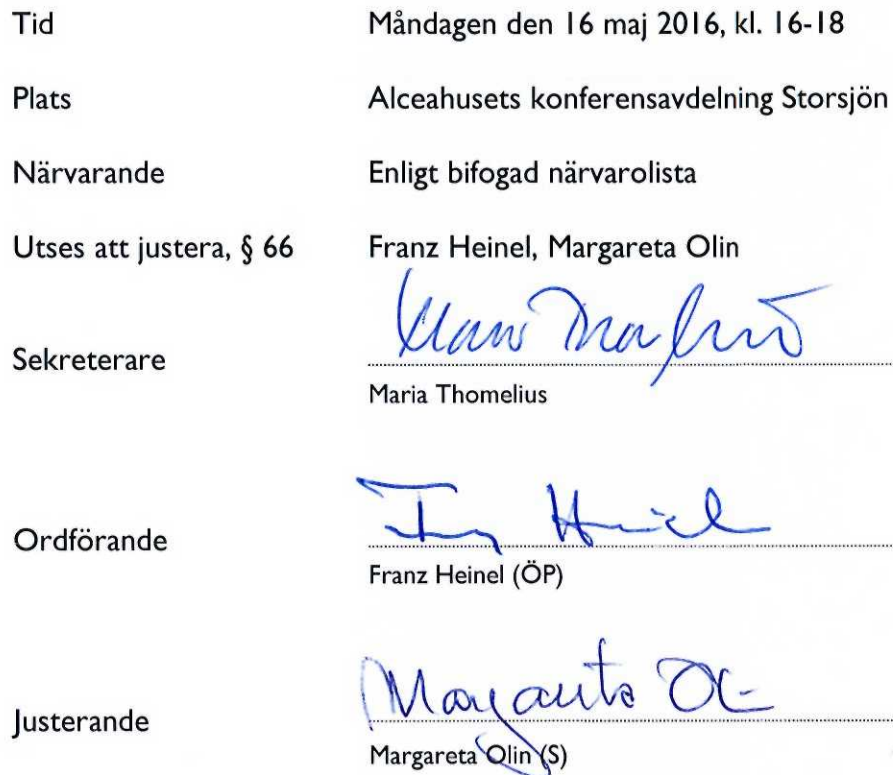 Tid Måndagen den 16 maj 2016, kl. 16-18
Plats Alceahusets konferensavdelning Storsjön
Närvarande Enligt bifogad närvarolista
Utses att justera, § 66 Franz Heinel, Margareta Olin
Sekreterare
Maria Thomelius
Ordförande
Franz Heinel (ÖP)
Margareta Ol
Justerande
Margareta Olin (S)